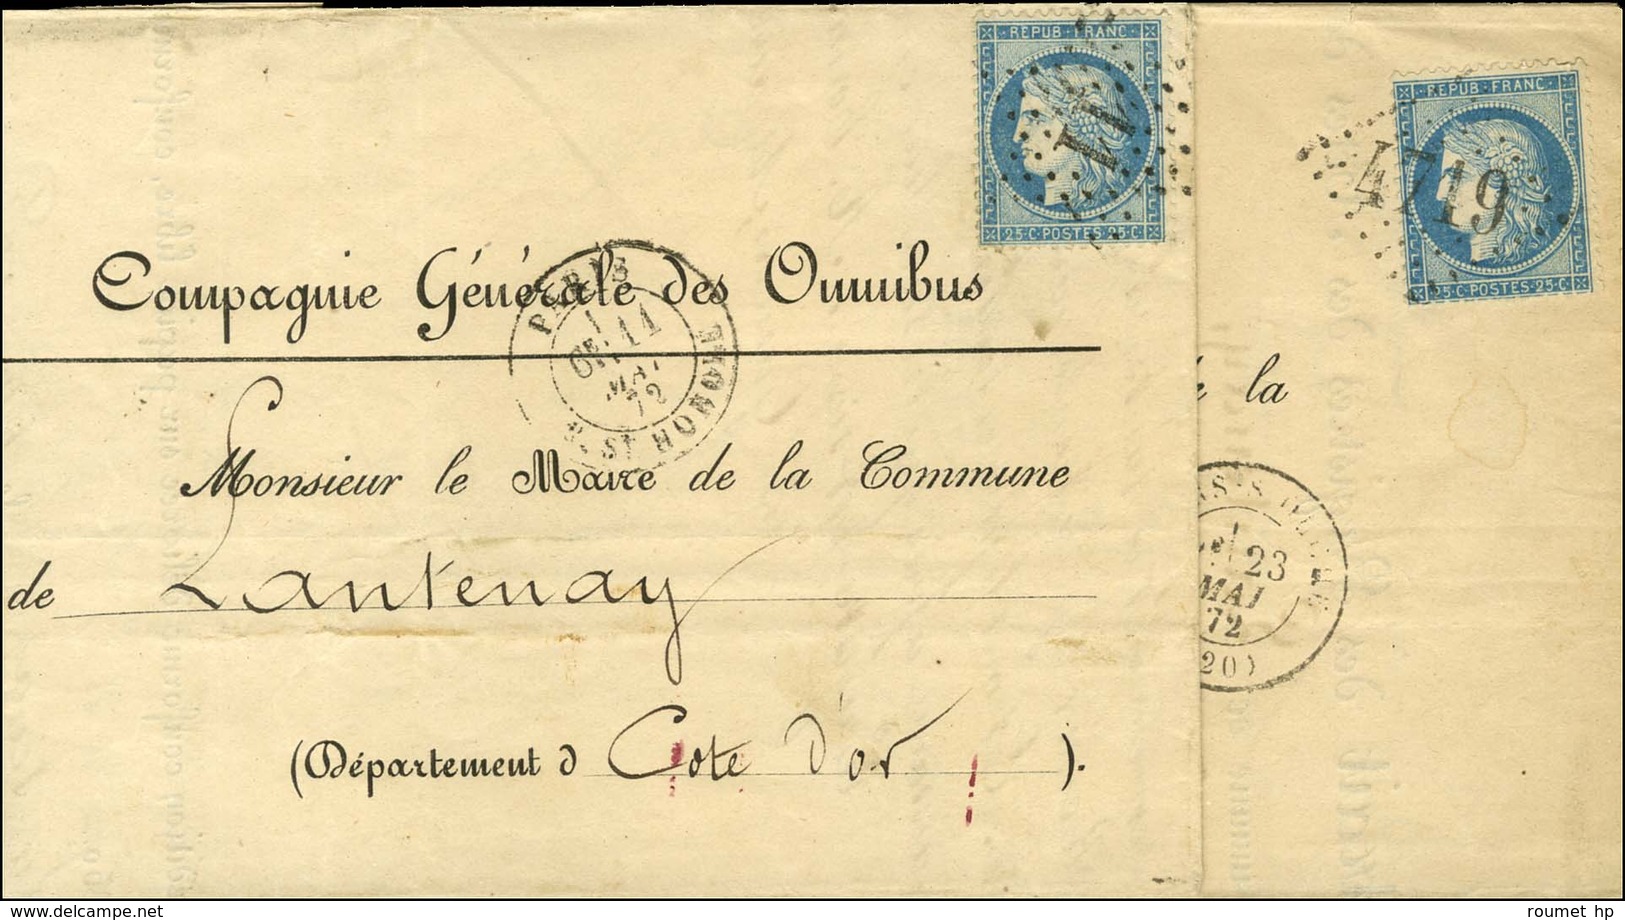 REPUB · FRANC
25·C·POSTES·25·C
REPUB · FRANC
4719
25·C·POSTES·25·C
Compagnie Générale des Omnibus
PARIS
R. ST HONORÉ
1
11
MAI
72
la
Monsieur le Maire de la Commune
de Lantenay
1
23
MAI
72
(20)
(Département d Cote d'or ).
© www.delcampe.net
roumet hp